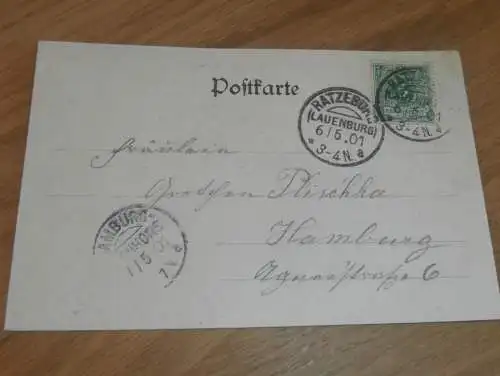 Postkarte
RATZEBURG
(LAUENBURG)
6/5.01
* 3-4N. a
Fräulein
Gretchen Plischka
Hamburg
Agnesstraße 6
HAMBURG
7/5 01